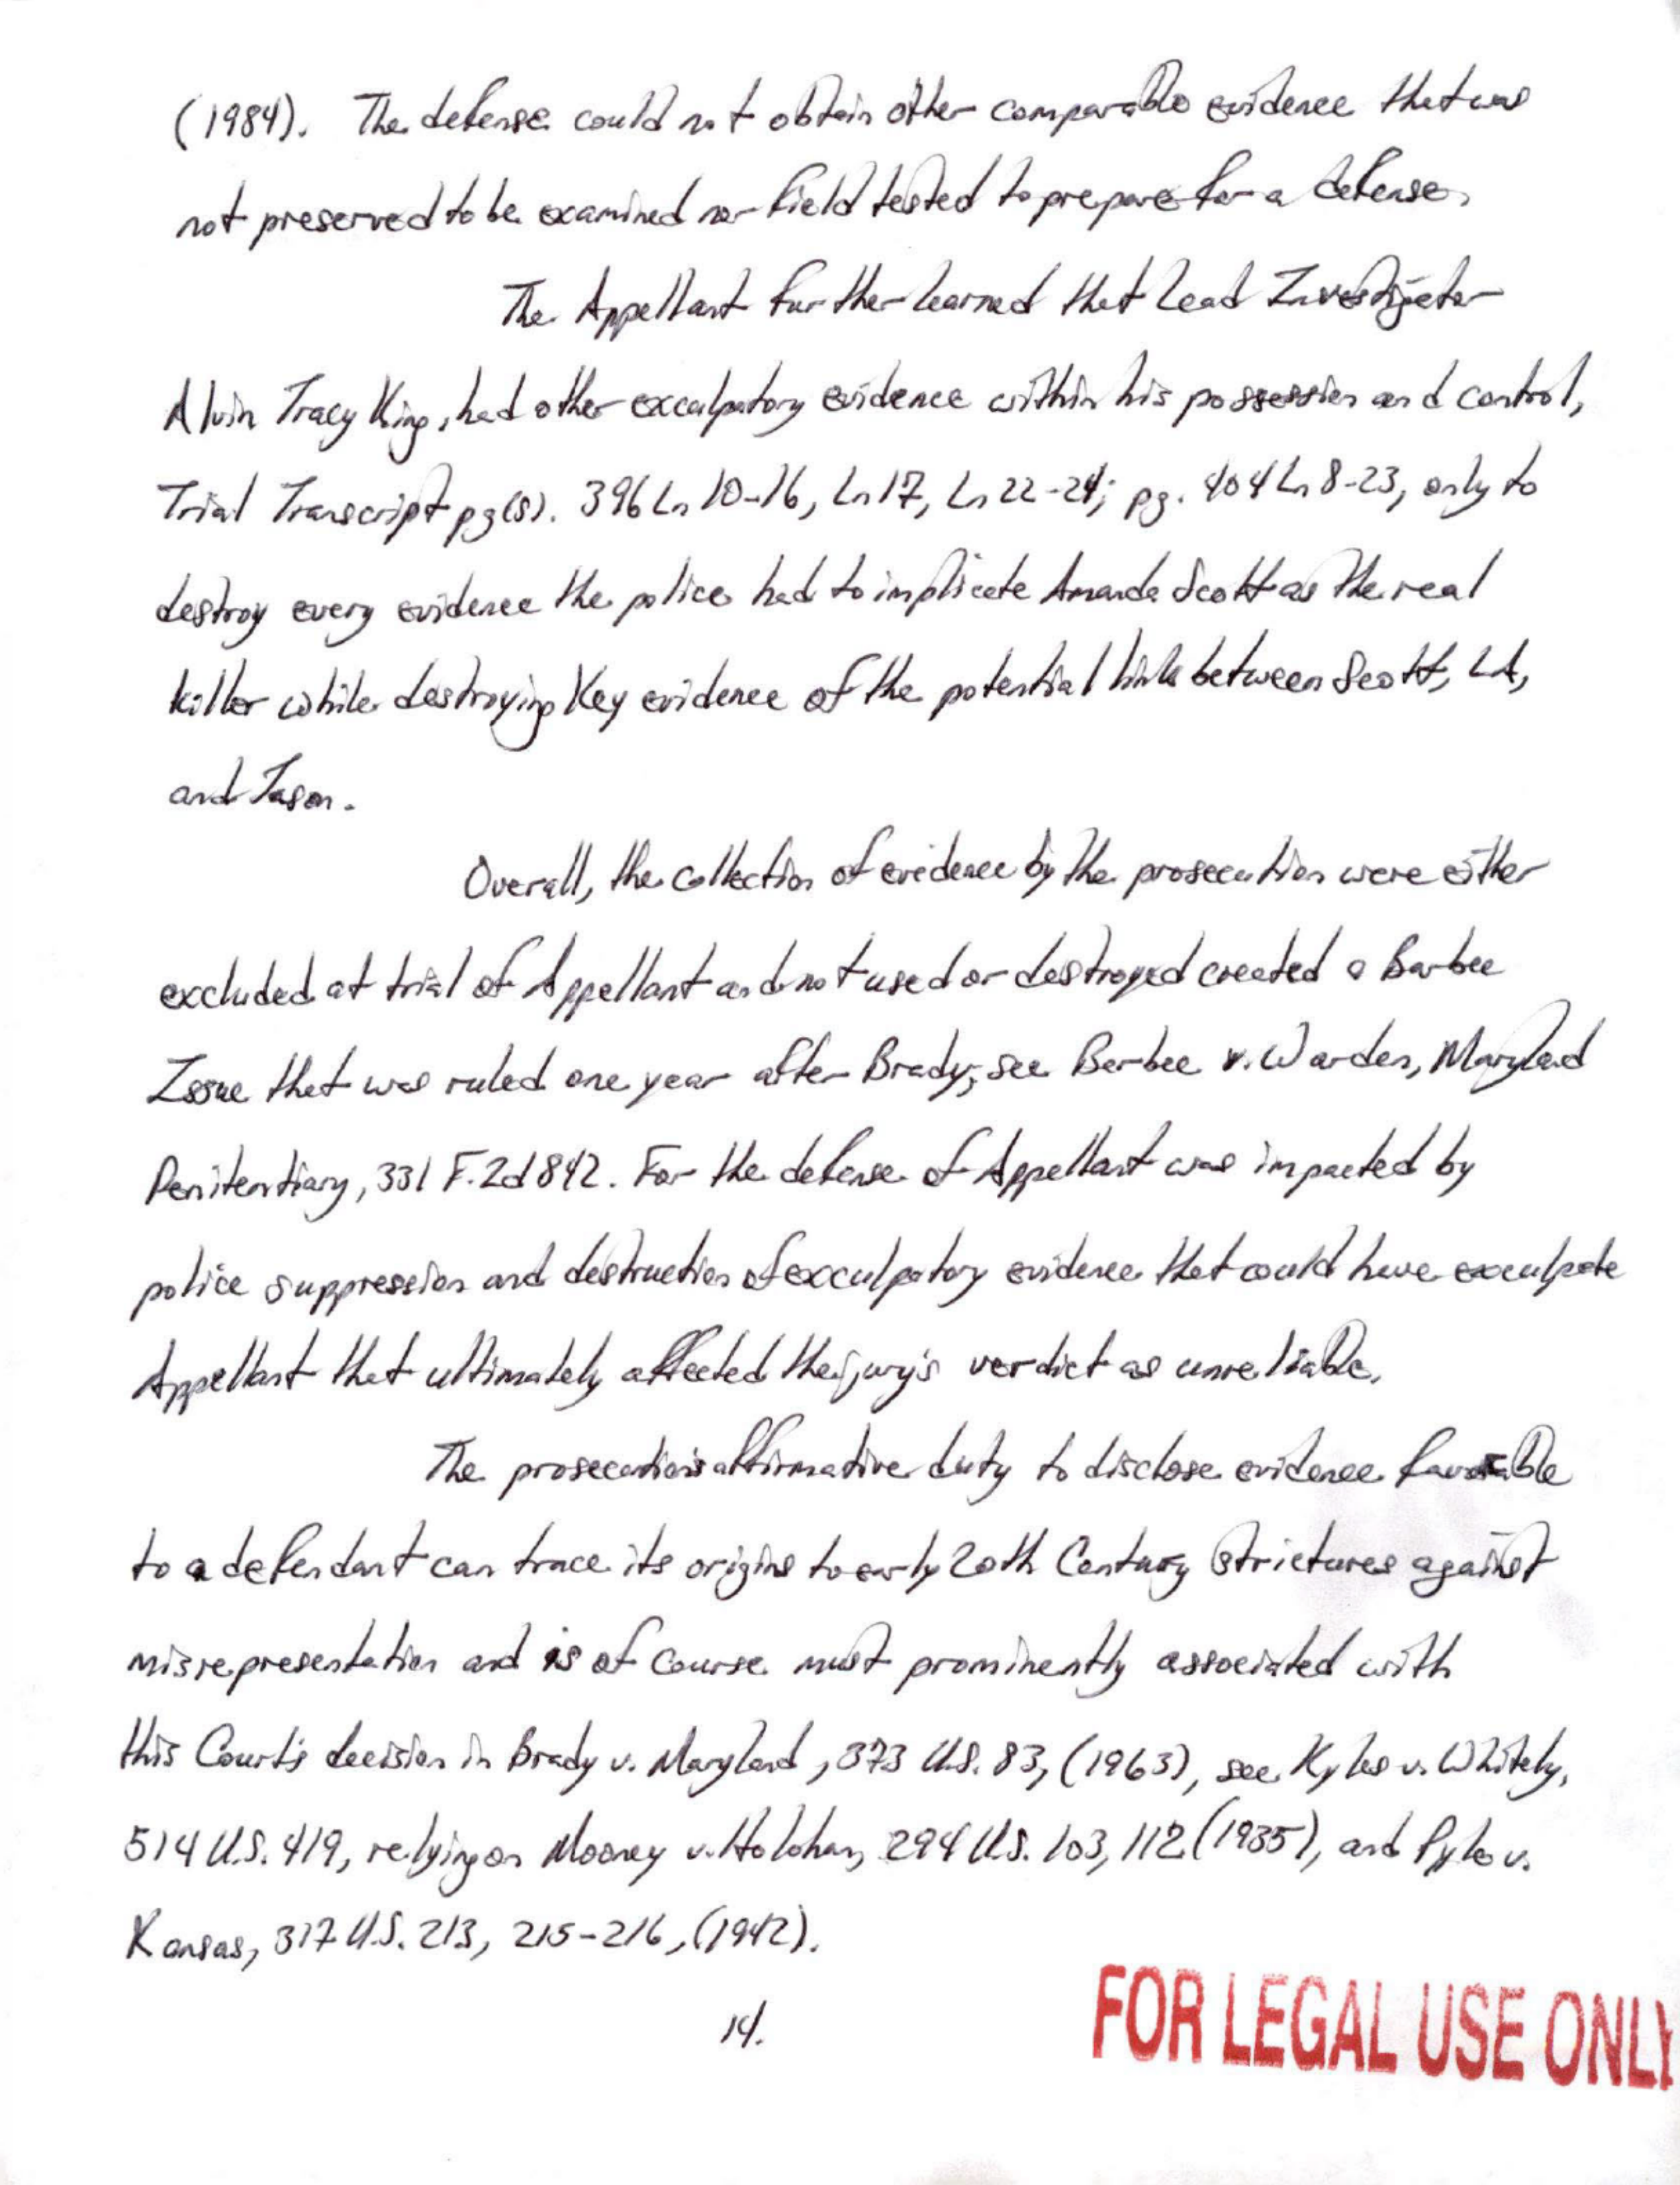 (1984). The defense could not obtain other comparable evidence that was
not preserved to be examined nor field tested to prepare for a defense.
The Appellant further learned that lead Investigator
Alvin Tracy King, had other exculpatory evidence within his possession and control,
Trial Transcript pg(s). 396 Ln 10-16, Ln 17, Ln 22-24; pg. 404 Ln 8-23, only to
destroy every evidence the police had to implicate Amanda Scott as the real
killer while destroying Key evidence of the potential link between Scott, LA,
and Jason.
Overall, the collection of evidence by the prosecution were either
excluded at trial of Appellant and not used or destroyed created a Barbee
Issue that was ruled one year after Brady; see Barbee v. Warden, Maryland
Penitentiary, 331 F.2d 842. For the defense of Appellant was impacted by
police suppression and destruction of exculpatory evidence that could have exculpate
Appellant that ultimately affected the jury's verdict as unreliable.
The prosecution's affirmative duty to disclose evidence favorable
to a defendant can trace its origins to early 20th Century strictures against
misrepresentation and is of course most prominently associated with
this Court's decision in Brady v. Maryland, 373 U.S. 83, (1963), see Kyles v. Whitely,
514 U.S. 419, relying on Mooney v. Holohan, 294 U.S. 103, 112 (1935), and Pyle v.
Kansas, 317 U.S. 213, 215-216, (1942).
14.
FOR LEGAL USE ONLY